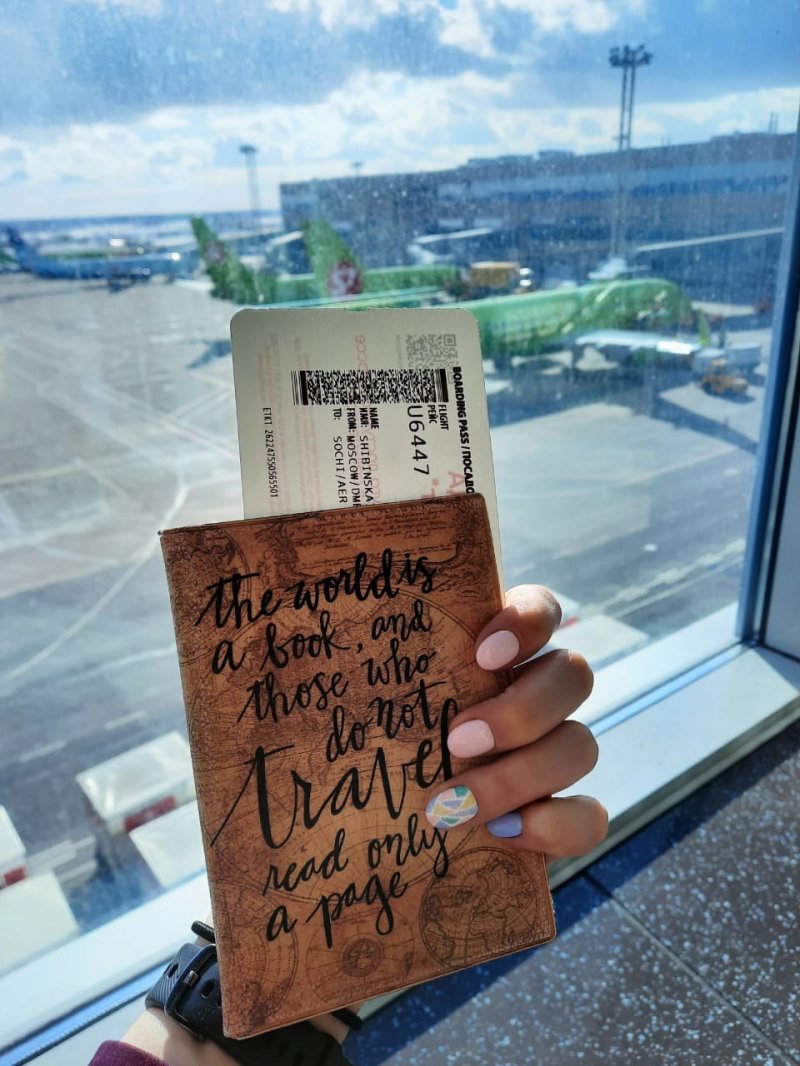 BOARDING PASS / ПОСАДО
FLIGHT
РЕЙС
U6447
NAME
SHIBINSKA
FROM: MOSCOW/DME
TO: SOCHI/AER
ETKT 2622475505655501
S7
the world is
a book, and
those who
do not
travel
read only
a page